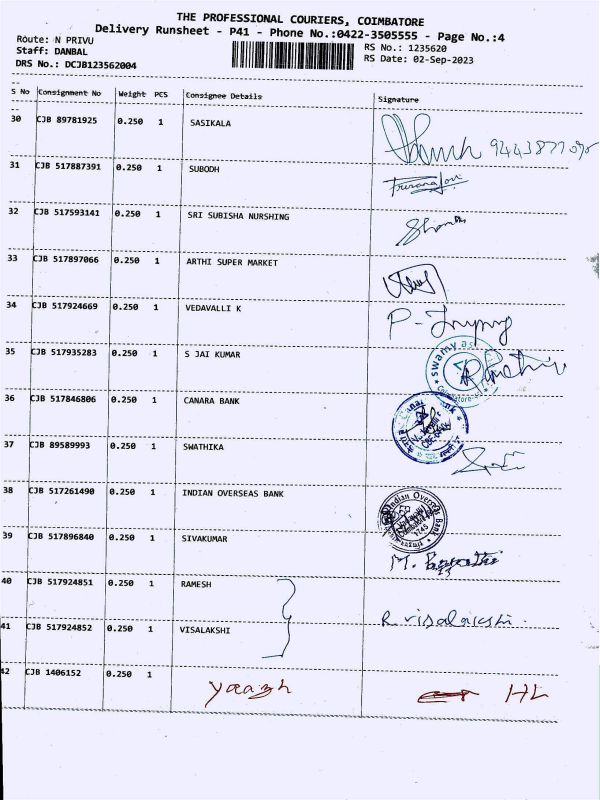 THE PROFESSIONAL COURIERS, COIMBATORE
Delivery Runsheet - P41 - Phone No.:0422-3505555 - Page No.:4
Route: N PRIVU
RS No.: 1235620
Staff: DANBAL
RS Date: 02-Sep-2023
DRS No.: DCJB123562004
S No Consignment No Weight PCS Consignee Details Signature
30 CJB 89781925 0.250 1 SASIKALA
31 CJB 517887391 0.250 1 SUBODH
32 CJB 517593141 0.250 1 SRI SUBISHA NURSHING
33 CJB 517897066 0.250 1 ARTHI SUPER MARKET
34 CJB 517924669 0.250 1 VEDAVALLI K
35 CJB 517935283 0.250 1 S JAI KUMAR
swamy
36 CJB 517846806 0.250 1 CANARA BANK
37 CJB 89589993 0.250 1 SWATHIKA
38 CJB 517261490 0.250 1 INDIAN OVERSEAS BANK
Indian Overseas Bank
39 CJB 517896840 0.250 1 SIVAKUMAR
40 CJB 517924851 0.250 1 RAMESH
R. visalakshi.
41 CJB 517924852 0.250 1 VISALAKSHI
42 CJB 1406152 0.250 1 yaazh HL